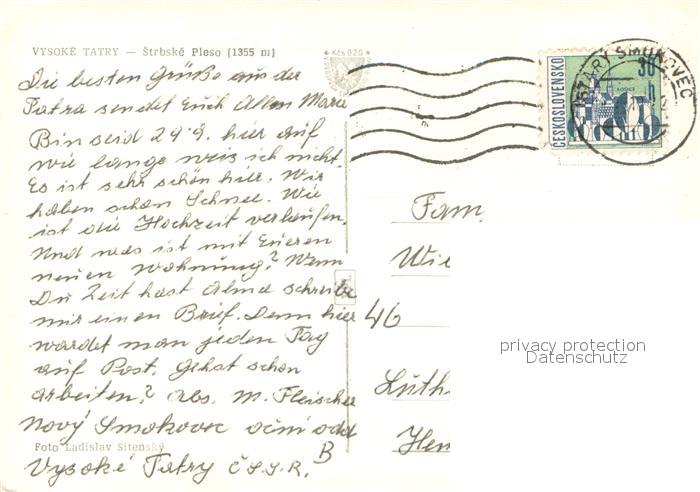 VYSOKÉ TATRY — Štrbské Pleso (1355 m)
Kčs 0,20
Die besten Grüße aus der
Tatra sendet Euch Allen Maria
Bin seid 29.9. hier auf
wie lange weis ich nicht.
Es ist sehr schön hier. Wir
haben schon Schnee. Wie
ist die Hochzeit verlaufen.
Und was ist mit Eueren
neuen Wohnung? Wenn
Du Zeit hast Alma schreibe
mir einen Brief. Denn hier
wardet man jeden Tag
auf Post. Gehat schon
arbeiten? Abs. M. Fleischer
Nový Smokovec oční odd
Foto Ladislav Sitenský
B
Vysoké Tatry Č.S.S.R.
STARÝ SMOKOVEC
ČESKOSLOVENSKO
30 h
KOŠICE
Fam.
Wie
46
Luth
Hen
privacy protection
Datenschutz